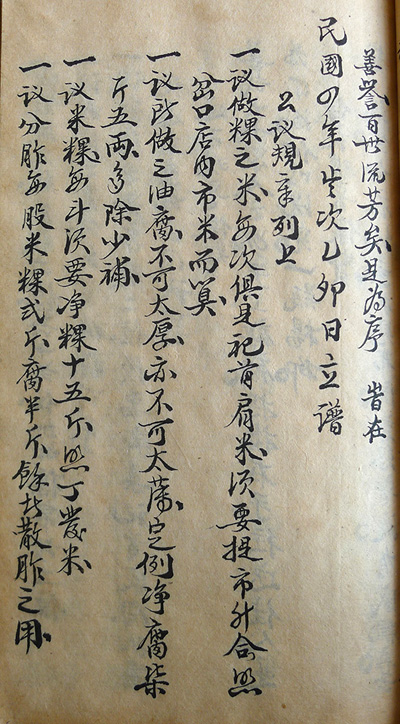 善誉百世流芳矣是為序 旹在
民國四年歲次乙卯日立譜
公议規章列上
一议做粿之米每次俱是祀首肩米须要提市升合照
岔口店内市米而算
一议所做之油腐不可太厚亦不可太薄定例净腐柒
斤五両多除少補
一议米粿每斗须要净粿十五斤照丁發米
一议分胙每股米粿弍斤腐半斤餘存散胙之用